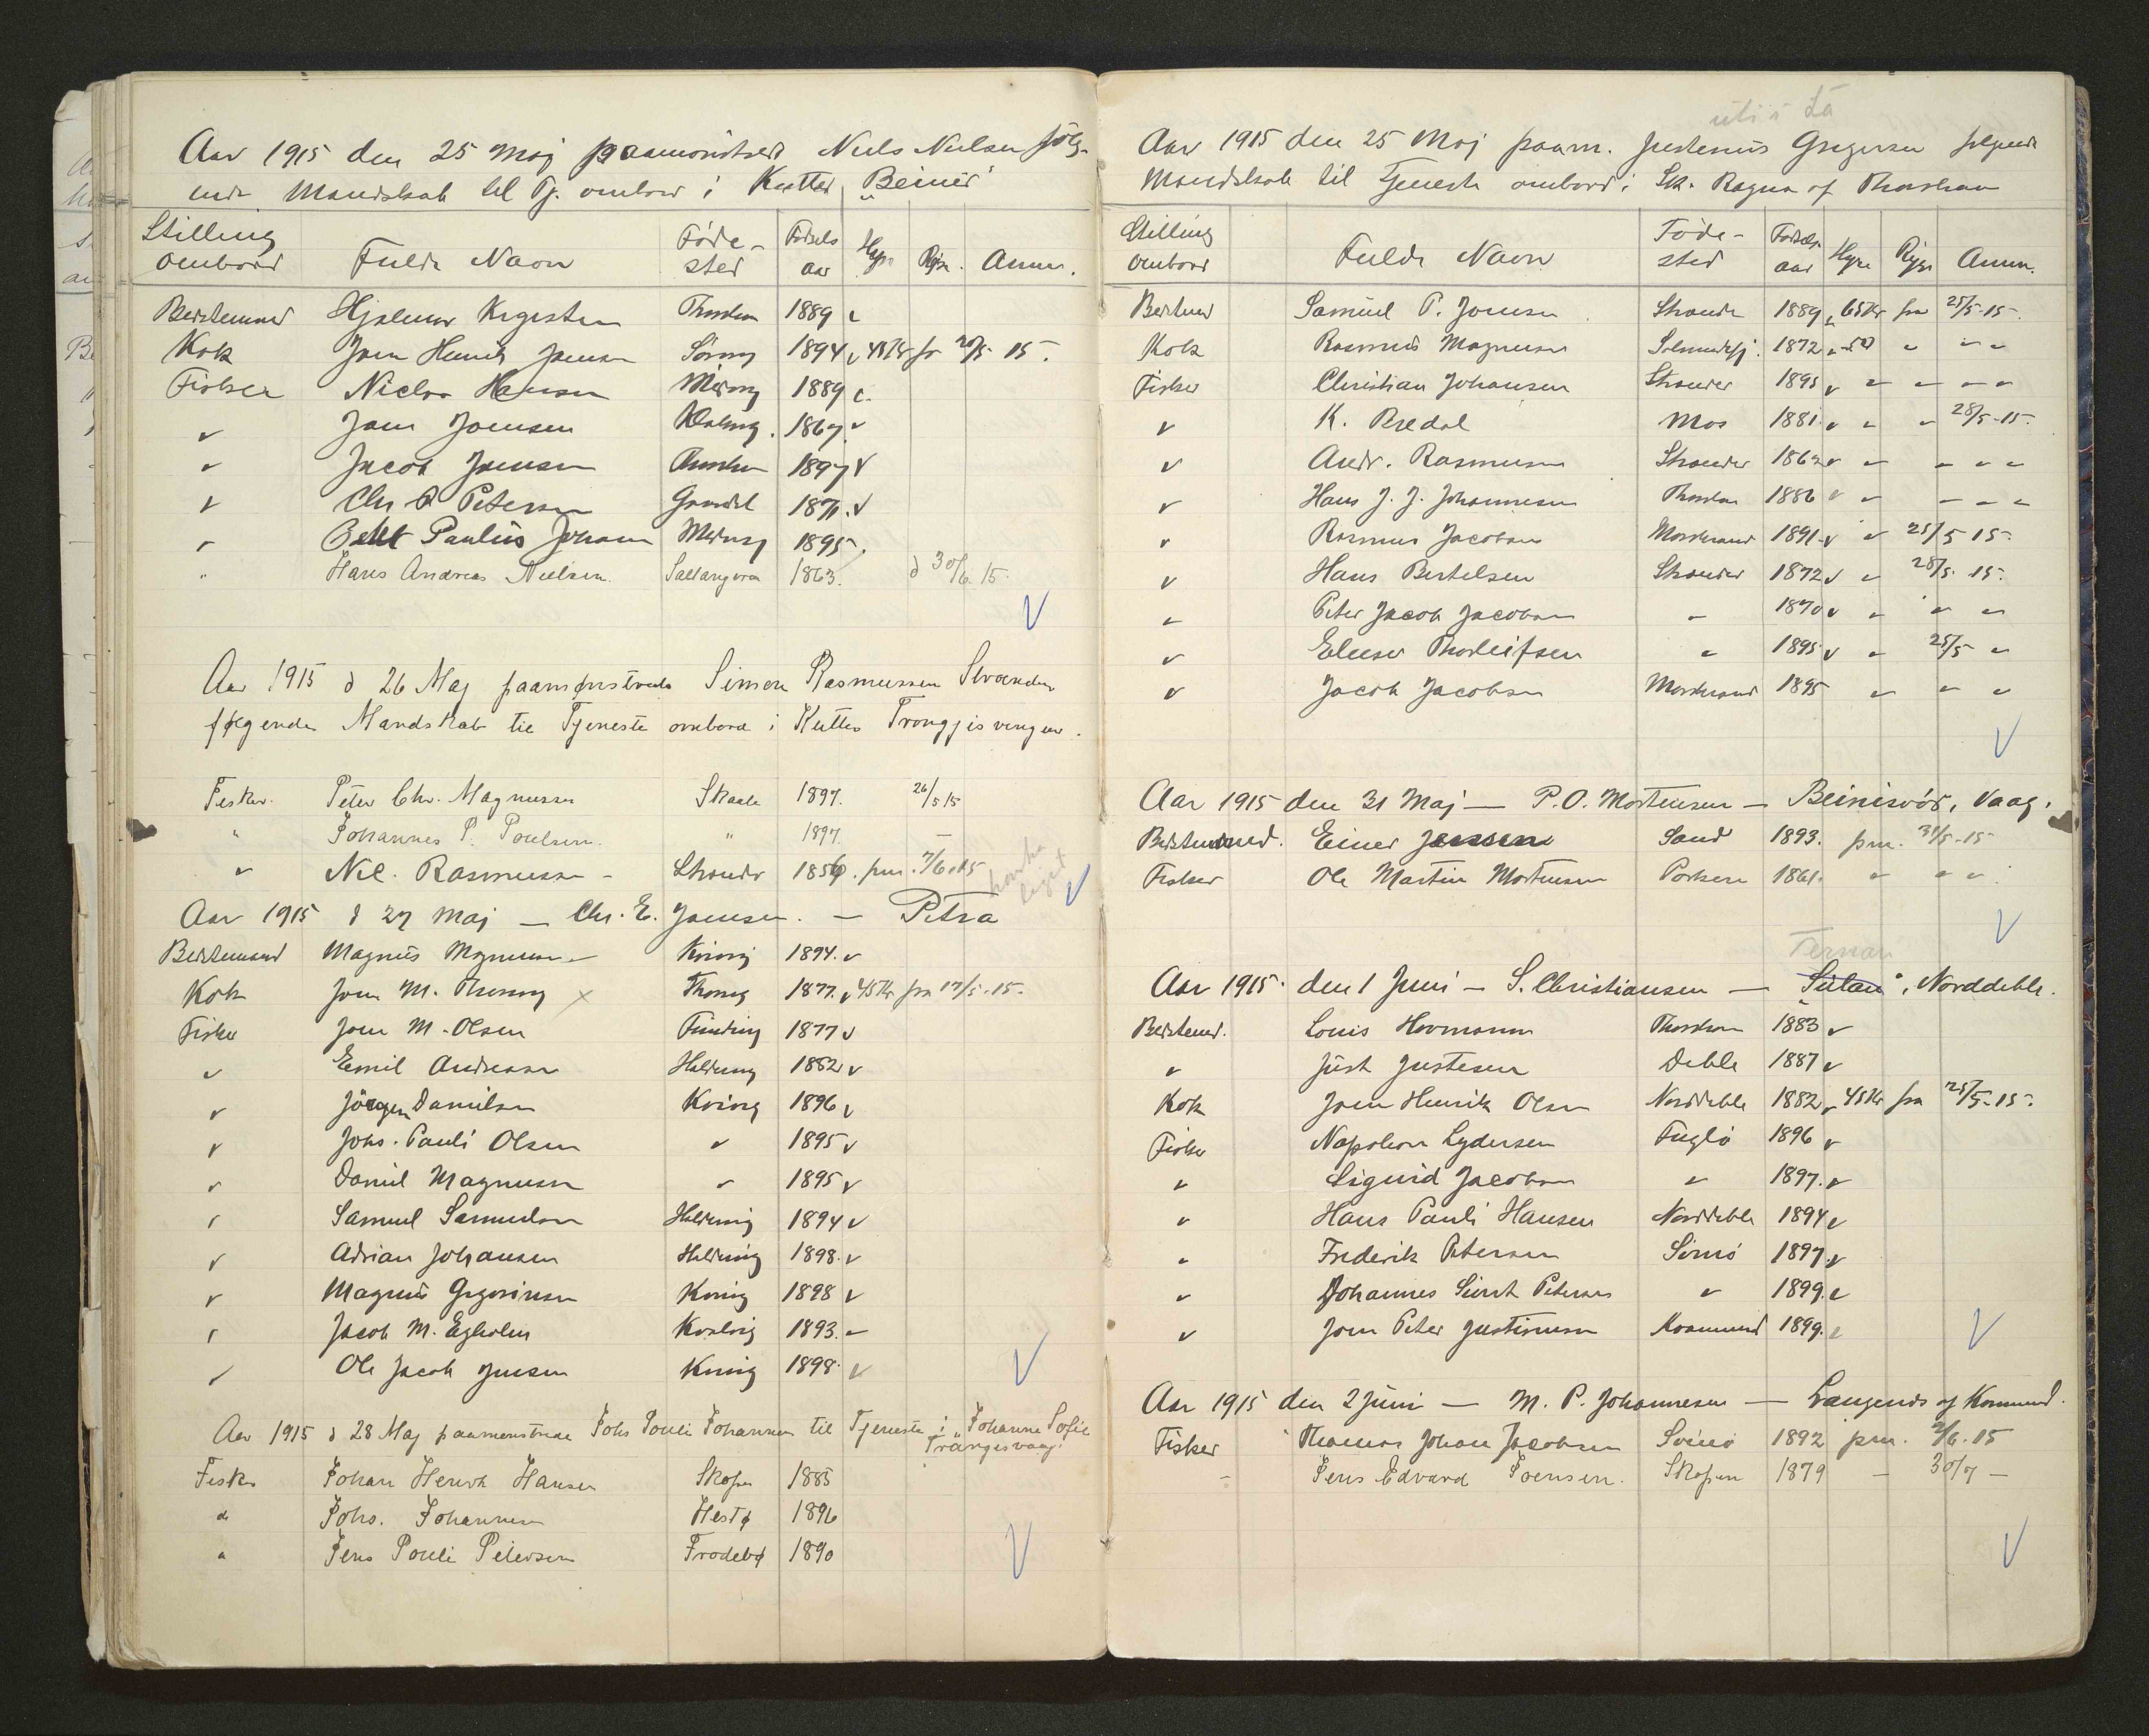 Aar 1915 den 25 Maj paamønstred Niels Nielsen følg-
ende Mandskab til Tj. ombord i Kutter "Beinir"
Stilling ombord Fulde Navn Føde-sted Fødsels aar Hyre Rejse Anm.
Bedstemand Hjalmar Thorshavn 1889
Kok Joen Henrik Jensen 1894 45 Kr fr 20/5 15.
Fisker Niclas Hansen 1889
Joen Joensen 1867
Jacob Joensen Thorshavn 1897
Chr Petersen 1871
Paulius Johan 1895.
" Hans Andreas Nielsen. Saltangeraa 1863. d 30/6 15.
Aar 1915 d 26 Maj paamønstrede Simon Rasmussen Strænder
følgende Mandskab til Tjeneste ombord i Kutter Trongjisvingur.
Fisker. Peter Chr. Magnussen Skaale 1897. 26/5 15
" Johannes P. Poulsen. " 1897. —
Nic. Rasmussen - Strænder 1856. pm. 7/6.15
Aar 1915 d 27 Maj — Chr. E. Joensen. — Petra
Bedstemand Magnus Magnussen Kvivig 1894.
Kok Joen M. Thomsen 1877. 45 Kr fra 17/5-15.
Fisker Joen M. Olsen Funding 1877
Emil Andreasen Haldersvig 1882
Jørgen Danielsen Kvivig 1896
Johs. Pauli Olsen 1895
Daniel Magnussen 1895
Samuel Samuelsen Haldersvig 1894
Adrian Johansen Haldersvig 1898.
Magnus Gregersen Kvivig 1898
Jacob M. Egholm Kvalvig 1893.
Ole Jacob Joensen Kvivig 1898.
Aar 1915 d 28 Maj paamønstrede Johs Pouli Johannesen til Tjeneste i "Johanne Sofie
Trangisvaag.
Fisker Johan Henrik Hansen Skopen 1885
Johs. Johannesen Hestø 1896
Jens Pouli Petersen Frodebø 1890
Aar 1915 den 25 Maj paam. Justenius Gregersen følgende
Mandskab til Tjeneste ombord i Sk. Ragna af Thorshavn
Stilling ombord Fulde Navn Føde-sted Fødsels aar Hyre Rejse Anm.
Bestmd Samuel P. Joensen Strænder 1889 65 Kr fra 25/5-15.
Kok Rasmus Magnussen 1872 50
Fisker Christian Johansen Strænder 1895
K. Bredal Mos 1881. 28/5-15.
Andr. Rasmussen Strænder 1862
Hans J. J. Johannesen Thorshavn 1886
Rasmus Jacobsen Morskranes 1891 25/5 15.
Hans Bertelsen Strænder 1872 28/5. 15.
Peter Jacob Jacobsen 1870
Elieser Thorleifsen 1895 25/5
Jacob Jacobsen Morskranes 1895
Aar 1915 den 31 Maj — P. O. Mortensen — Beinisvør, Vaag.
Bedstemand. Einer Jensen Sand 1893. pm. 31/5-15
Fisker Ole Martin Mortensen Porkere 1861.
Ternan
Aar 1915. den 1 Juni — S. Christiansen — "Sulan", Norddeble.
Bedstemd. Louis Hovmann Thorshavn 1883
Just Justesen Deble 1887
Kok Joen Henrik Olsen Norddeble 1882 45 Kr fra 25/5-15.
Fisker Napoleon Lydersen Fuglø 1896
Sigurd Jacobsen 1897.
Hans Pauli Hansen Norddeble 1894
Frederik Petersen 1897.
Johannes Petersen 1899.
Joen Peter Justinussen 1899.
Aar 1915 den 2 Juni — M. P. Johannesen — Langenæs af
Fisker Thomas Johan Jacobsen Svinø 1892 pm. 2/6.15
- Jens Edvard Joensen. Skopen 1879 — 30/7 —